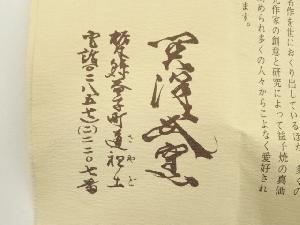 名作を世におくり出しているほか、多くの
作家の創意と研究によって益子の真価
められ多くの人々からこよなく愛好され
ます。
窯
栃木県益子町道祖土
さやど
電話〇二八五七(二)二二〇七番